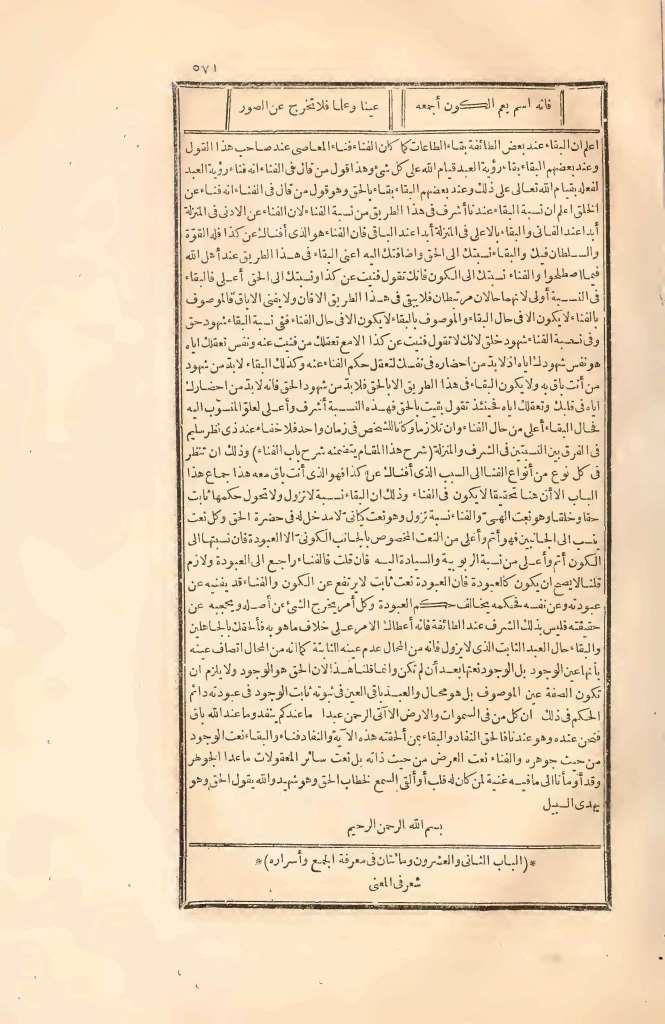 ٥٧١
فانه اسم يعم الكون أجمعه عينا وعلما فلا تخرج عن الصور
اعلم ان البقاء عند بعض الطائفة بقاء الطاعات كما كان الفناء فناء المعاصى عند صاحب هذا القول
وعند بعضهم البقاء بقاء رؤية العبد قيام الله على كل شئ وهذا قول من قال فى الفناء انه فناء رؤية العبد
لفعله بقيام الله تعالى على ذلك وعند بعضهم البقاء بقاء بالحق وهو قول من قال فى الفناء انه فناء عن
الخلق اعلم ان نسبة البقاء عندنا أشرف فى هذا الطريق من نسبة الفناء لان الفناء عن الادنى فى المنزلة
أبدا عند الفانى والبقاء بالاعلى فى المنزلة أبدا عند الباقى فان الفناء هو الذى أفناك عن كذا فله القوّة
والسلطان فيك والبقاء نسبتك الى الحق واضافتك اليه اعنى البقاء فى هذا الطريق عند أهل الله
فيما اصطلحوا والفناء نسبتك الى الكون فانك تقول فنيت عن كذا ونسبتك الى الحق أعلى فالبقاء
فى النسبة أولى لانهما حالان مرتبطان فلا يبقى فى هذا الطريق الا فان ولا يفنى الا باق فالموصوف
بالفناء لا يكون الا فى حال البقاء والموصوف بالبقاء لا يكون الا فى حال الفناء ففى نسبة البقاء شهود حق
وفى نسبة الفناء شهود خلق لانك لا تقول فنيت عن كذا الا مع تعقلك من فنيت عنه ونفس تعقلك اياه
هو نفس شهودك اياه اذ لا بدّ من احضاره فى نفسك لتعقل حكم الفناء عنه وكذلك البقاء لا بدّ من شهود
من أنت باق به ولا يكون البقاء فى هذا الطريق الا بالحق فلا بدّ من شهود الحق فانه لا بدّ من احضارك
اياه فى قلبك وتعقلك اياه فحينئذ تقول بقيت بالحق فهذه النسبة أشرف وأعلى لعلوّ المنسوب اليه
فحال البقاء أعلى من حال الفناء وان تلازما وكانا للشخص فى زمان واحد فلا خفاء عند ذى نظر سليم
فى الفرق بين النسبتين فى الشرف والمنزلة (شرح هذا المقام يتضمنه شرح باب الفناء) وذلك ان تنظر
فى كل نوع من أنواع الفناء الى السبب الذى أفناك عن كذا فهو الذى أنت باق معه هذا جماع هذا
الباب الا أن هنا تحقيقا لا يكون فى الفناء وذلك ان البقاء نسبة لا تزول ولا تحول حكمها ثابت
حقا وخلقا وهو نعت الهىّ والفناء نسبة تزول وهو نعت كيانىّ لا مدخل له فى حضرة الحق وكل نعت
ينسب الى الجانبين فهو أتم وأعلى من النعت المخصوص بالجانب الكونىّ الا العبودة فان نسبتها الى
الكون أتم وأعلى من نسبة الربوبية والسيادة اليه فان قلت فالفناء راجع الى العبودة ولازم
قلنا لا يصح ان يكون كالعبودة فان العبودة نعت ثابت لا يرتفع عن الكون والفناء قد يفنيه عن
عبودته وعن نفسه فحكمه يخالف حكم العبودة وكل أمر يخرج الشئ عن أصله ويحجبه عن
حقيقته فليس بذلك الشرف عند الطائفة فانه أعطاك الامر على خلاف ما هو به فألحقك بالجاهلين
والبقاء حال العبد الثابت الذى لا يزول فانه من المحال عدم عينه الثابتة كما انه من المحال اتصاف عينه
بأنها عين الوجود بل الوجود نعتها بعد أن لم تكن وانما قلنا هذا لان الحق هو الوجود ولا يلزم ان
تكون الصفة عين الموصوف بل هو محال والعبد باقى العين فى ثبوته ثابت الوجود فى عبودته دائم
الحكم فى ذلك ان كل من فى السموات والارض الا آتى الرحمن عبدا ما عندكم ينفد وما عند الله باق
فنحن عنده وهو عندنا فالحق النفاد والبقاء بمن ألحقته هذه الآية والنفاد فناء والبقاء نعت الوجود
من حيث جوهره والفناء نعت العرض من حيث ذاته بل نعت سائر المعقولات ماعدا الجوهر
وقد أومأنا الى ما فيه غنية لمن كان له قلب أو ألقى السمع لخطاب الحق وهو شهيد والله يقول الحق وهو
يهدى السبيل
بسم الله الرحمن الرحيم
*(الباب الثانى والعشرون ومائتان فى معرفة الجمع وأسراره)*
شعر فى المعنى